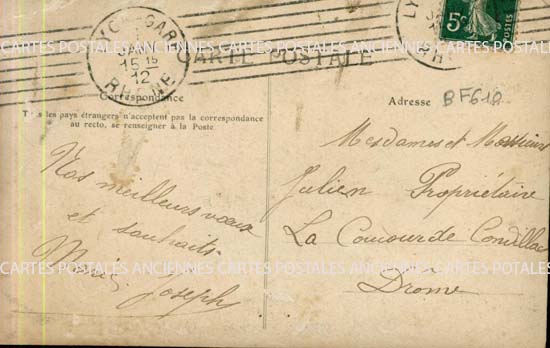 LYON-GARE
15 15
12
RHONE
5c
CARTE POSTALE
Correspondance
Tous les pays étrangers n'acceptent pas la correspondance
au recto, se renseigner à la Poste
Nos meilleurs vœux
et souhaits
Joseph
Adresse
BF610
Mesdames et Messieurs
Julien Propriétaire
La Coucourde Condillac
Drome
CARTES POSTALES ANCIENNES CARTES POSTALES ANCIENNES CARTES POSTALES
CARTES POSTALES ANCIENNES CARTES POSTALES ANCIENNES CARTES POSTALES